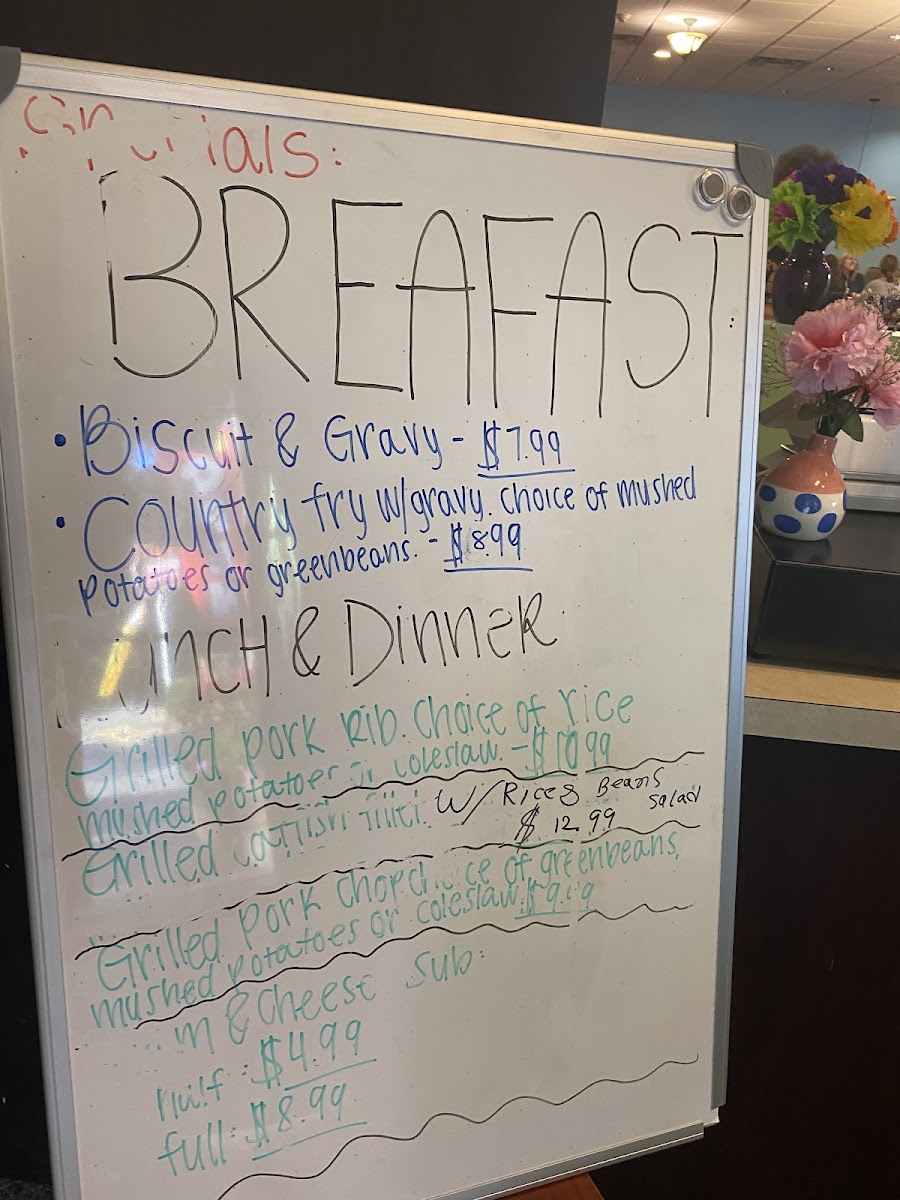 Specials:
BREAFAST:
• Biscuit & Gravy - $7.99
• Country fry w/gravy. choice of mushed
potatoes or greenbeans. - $8.99
Lunch & Dinner
Grilled pork Rib. Choice of rice
mushed potatoes or coleslaw. - $10.99
Grilled catfish fillet. W/ Rice & Beans
Salad
$12.99
Grilled Pork chop choice of greenbeans,
mushed potatoes or coleslaw.
& Cheese Sub:
half: $4.99
full: $8.99